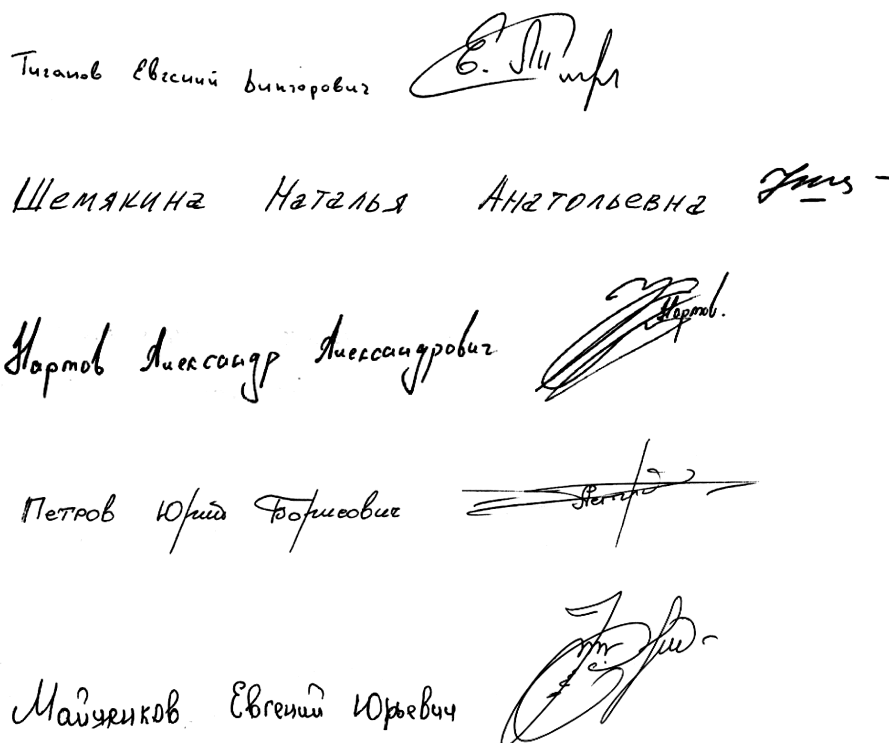 Тиганов Евгений Викторович
Шемякина Наталья Анатольевна
Нартов Александр Александрович Нартов.
Петров Юрий Борисович
Евгений Юрьевич